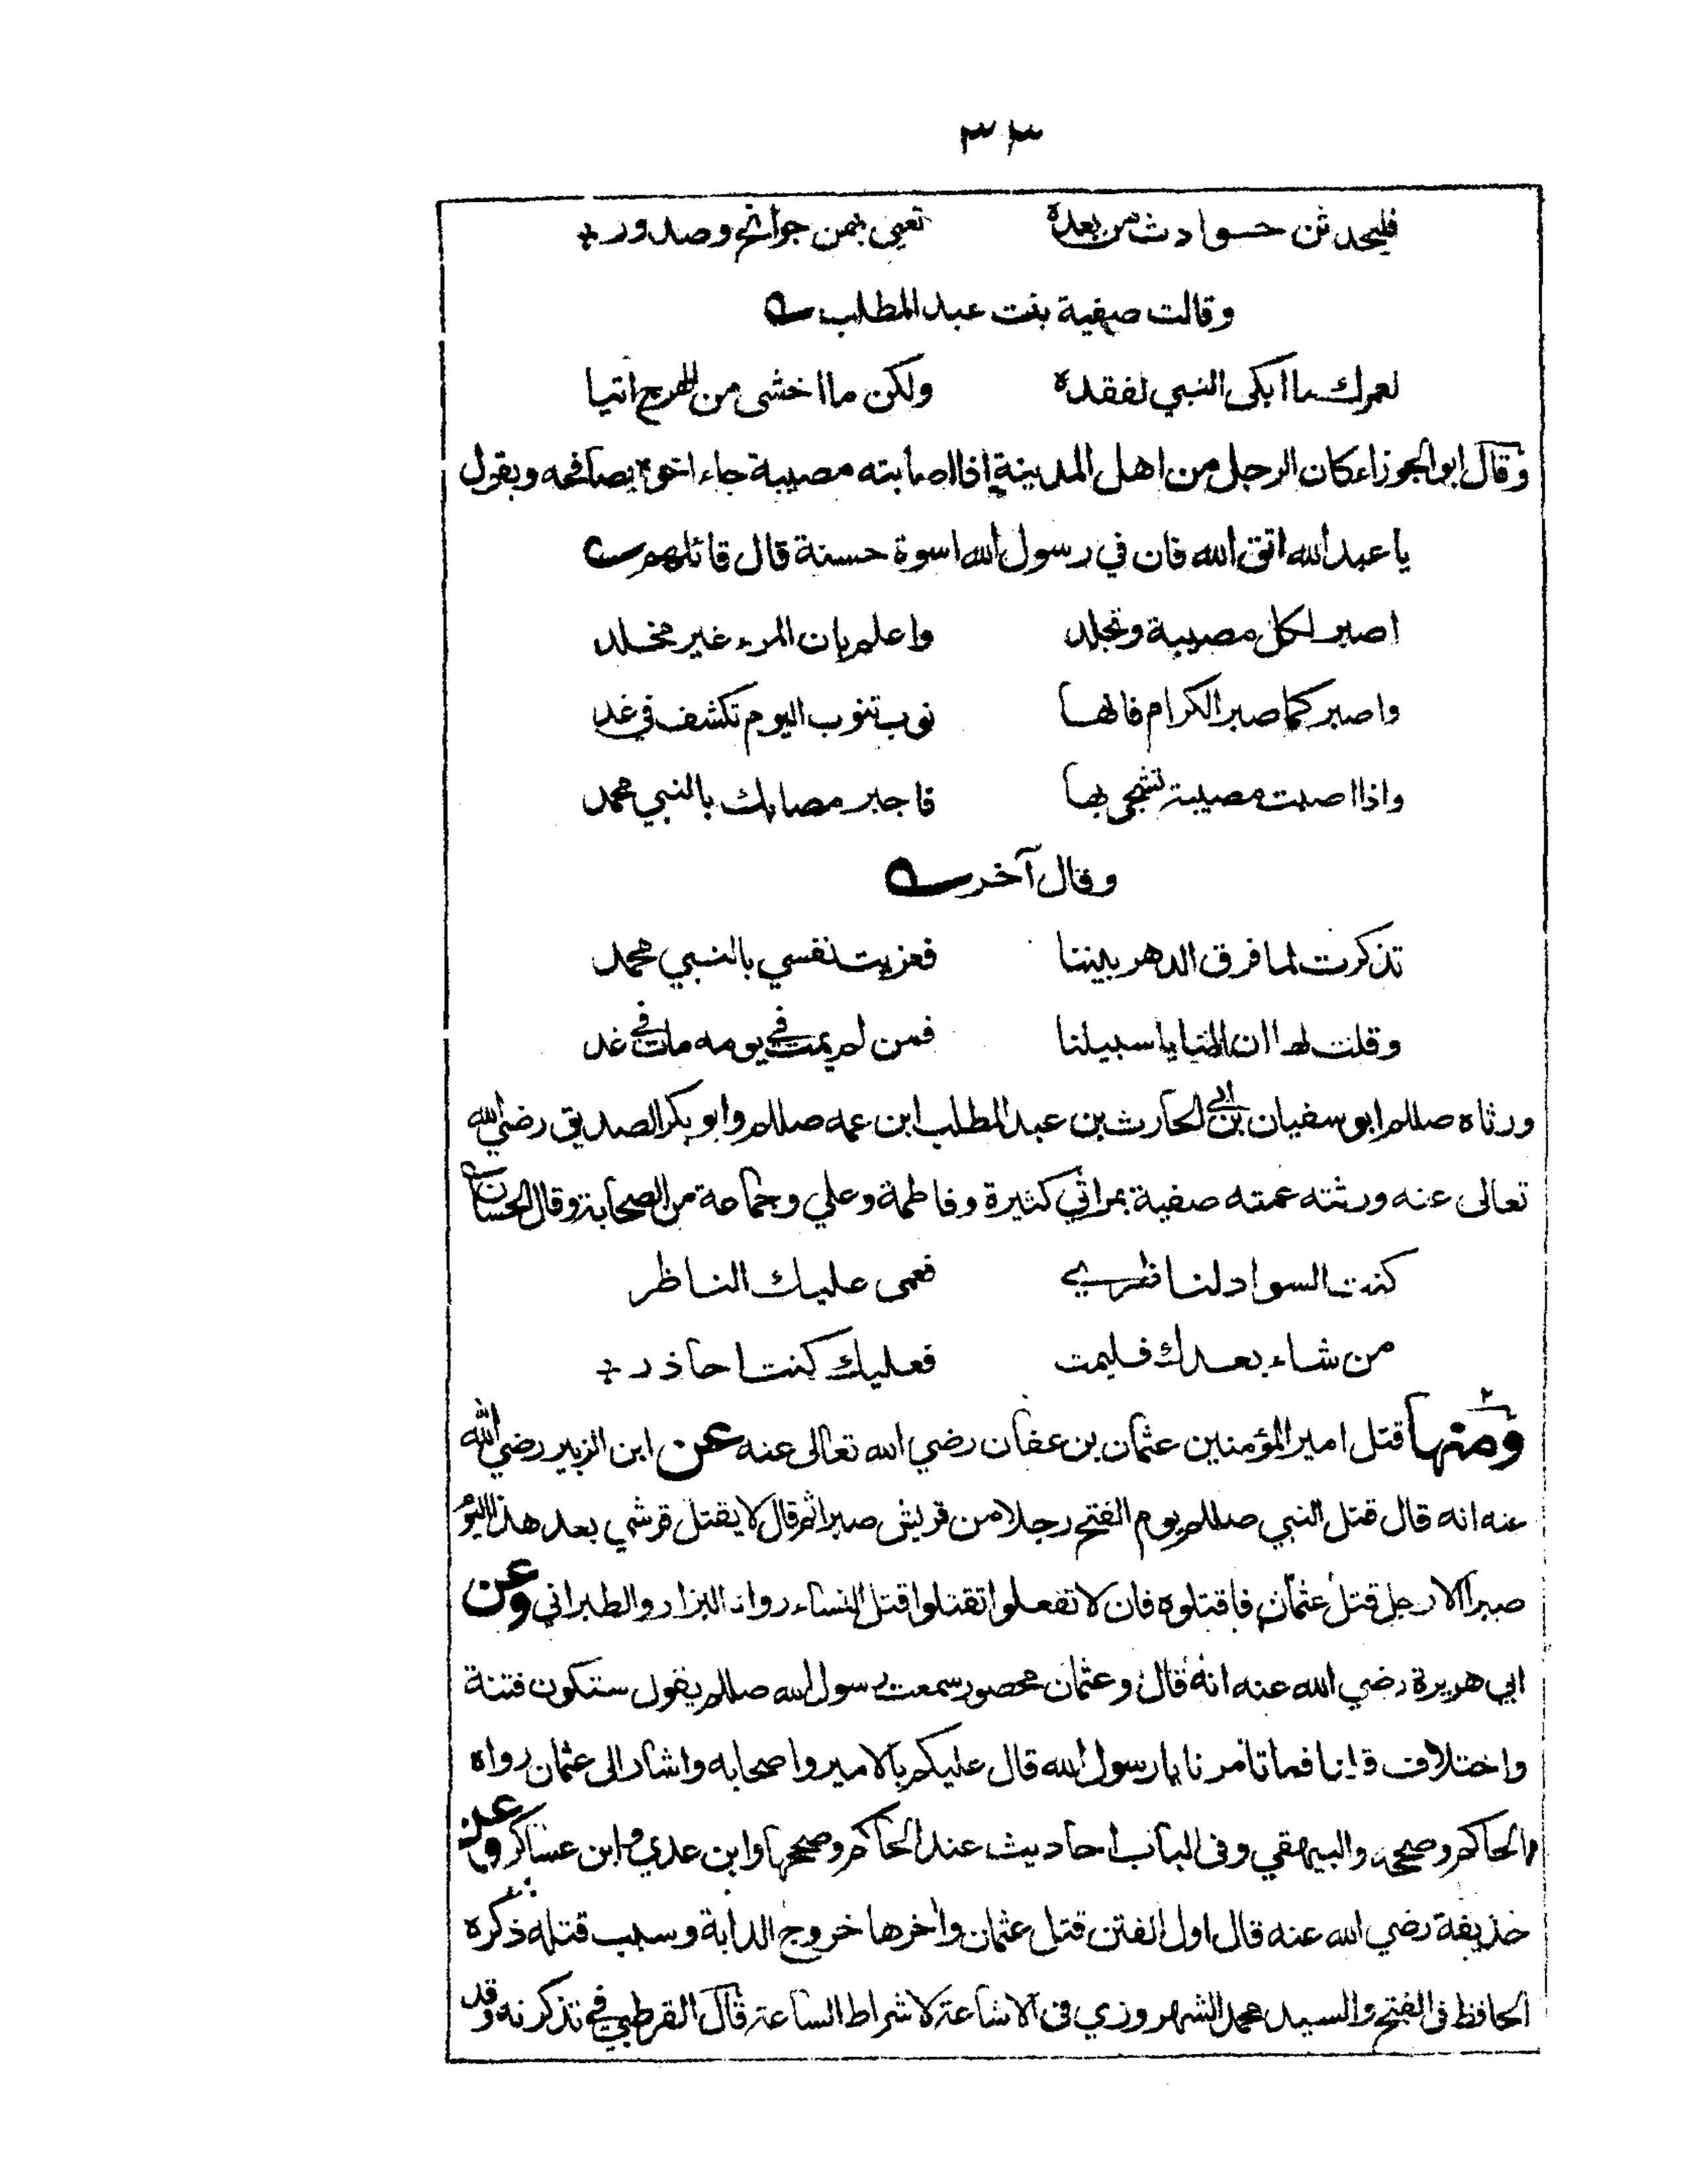 ٣٣
فليحدثن حوادث من بعده تعيى بهمن جوانح وصدور
وقالت صفية بنت عبد المطلب
لعمرك ما ابكى النبي لفقده ولكن ما اخشى من الهرج اتيا
وقال ابو الجوزاء كان الرجل من اهل المدينة اذا اصابته مصيبة جاء اخوه يصافحه ويقول
يا عبد الله اتق الله فان في رسول الله اسوة حسنة قال قائلهم
اصبر لكل مصيبة وتجلد واعلم بان المرء غير مخلد
واصبر كما صبر الكرام فانها نوب تنوب اليوم تكشف في غد
واذا اصبت مصيبة تشجى بها فاجبر مصابك بالنبي محمد
وقال آخر
تذكرت لما فرق الدهر بيننا فعزيت نفسي بالنبي محمد
وقلت لها ان المنايا سبيلنا فمن لم يمت في يومه مات في غد
ورثاه صللم ابو سفيان بن ابي الحارث بن عبد المطلب ابن عمه صللم وابو بكر الصديق رضي الله
تعالى عنه ورثته عمته صفية بمراثي كثيرة وفاطمة وعلي وجماعة من الصحابة وقال الحسان
كنت السواد لناظري فعمى عليك الناظر
من شاء بعدك فليمت فعليك كنت احاذر
٢ ومنها قتل امير المؤمنين عثمان بن عفان رضي الله تعالى عنه عن ابن الزبير رضي الله
عنه انه قال قتل النبي صللم يوم الفتح رجلا من قريش صبرا ثم قال لا يقتل قرشي بعد هذا اليوم
صبرا الا رجل قتل عثمان فاقتلوه فان لا تفعلوا تقتلوا قتل النساء رواه البزار والطبراني وعن
ابي هريرة رضي الله عنه انه قال وعثمان محصور سمعت رسول الله صللم يقول ستكون فتنة
واختلاف قلنا فما تأمرنا يا رسول الله قال عليكم بالامير واصحابه واشار الى عثمان رواه
الحاكم وصححه والبيهقي وفى الباب احاديث عند الحاكم وصححها وابن عدي وابن عساكر وعن
حذيفة رضي الله عنه قال اول الفتن قتل عثمان واخرها خروج الدابة وسبب قتله ذكره
الحافظ فى الفتح والسيد محمد الشهروزي فى الاشاعة لاشراط الساعة قال القرطبي في تذكرته وقد